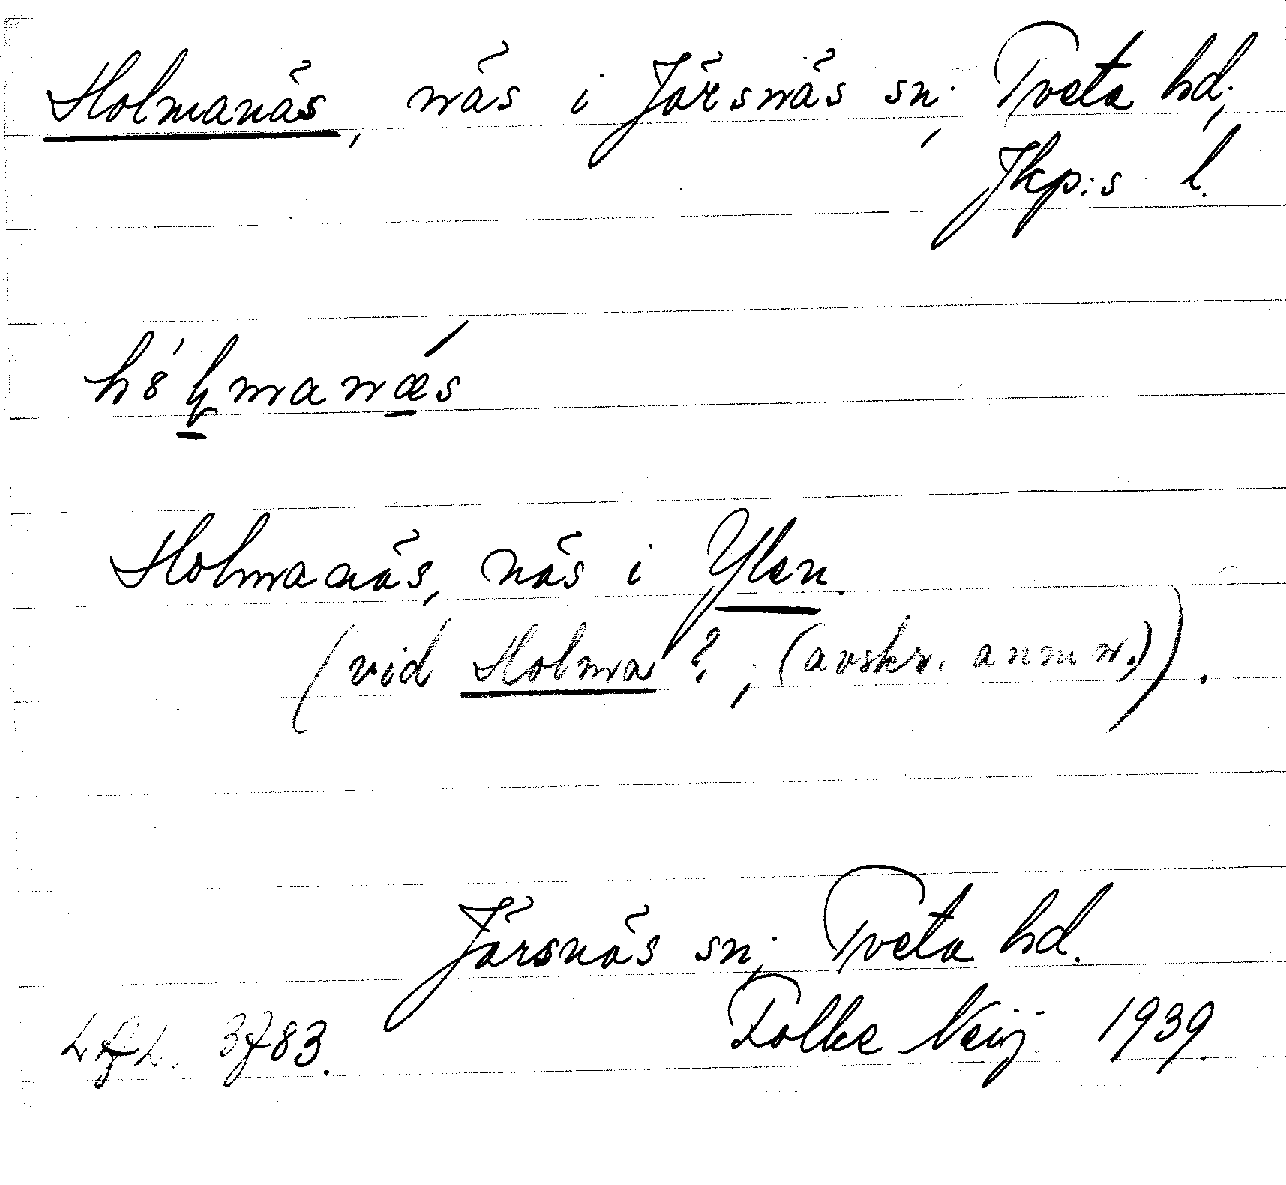 Holmanäs, näs i Järsnäs sn; Tveta hd;
Jkp:s l.
Holmanäs, näs i Ylen.
(vid Holma?, (avskr. anm.)).
Järsnäs sn; Tveta hd.
Folke Neij 1939.